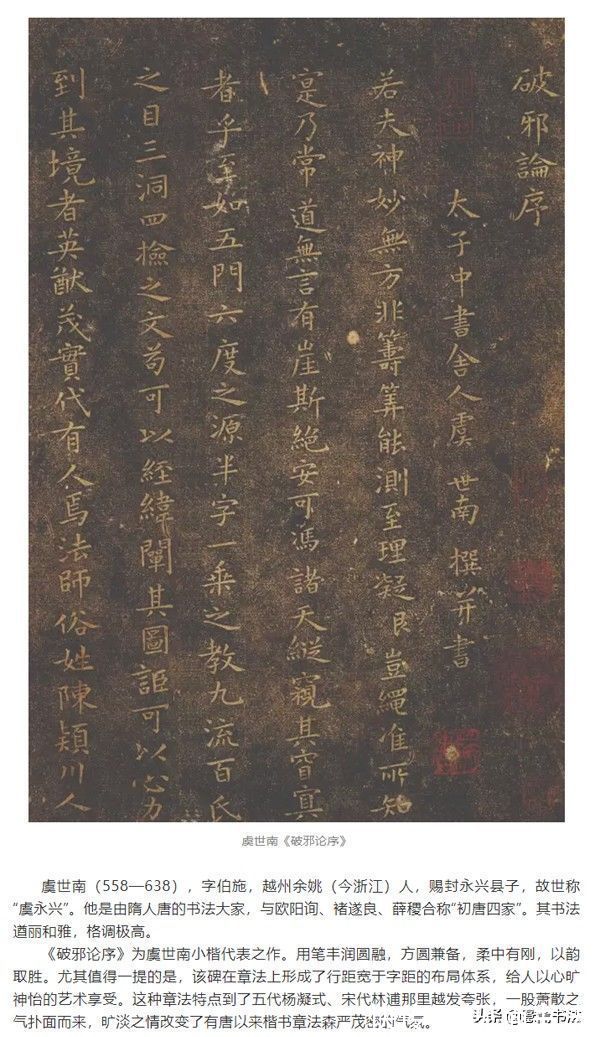 破邪論序
太子中書舍人虞世南撰并書
若夫神妙無方非籌筭能測至理凝豈繩准所知
寔乃常道無言有崖斯絶安可馮諸天縱窺其窅冥
者乎至如五門六度之源半字一乘之教九流百氏
之目三洞四撿之文苟可以經緯闡其圖詎可以心力
到其境者英猷茂實代有人焉法師俗姓陳潁川人
虞世南《破邪论序》
虞世南（558—638），字伯施，越州余姚（今浙江）人，赐封永兴县子，故世称
“虞永兴”。他是由隋人唐的书法大家，与欧阳询、褚遂良、薛稷合称“初唐四家”。其书法
遒丽和雅，格调极高。
《破邪论序》为虞世南小楷代表之作。用笔丰润圆融，方圆兼备，柔中有刚，以韵
取胜。尤其值得一提的是，该碑在章法上形成了行距宽于字距的布局体系，给人以心旷
神怡的艺术享受。这种章法特点到了五代杨凝式、宋代林逋那里越发夸张，一股萧散之
气扑面而来，旷淡之情改变了有唐以来楷书章法森严茂密的气氛。
头条 书法